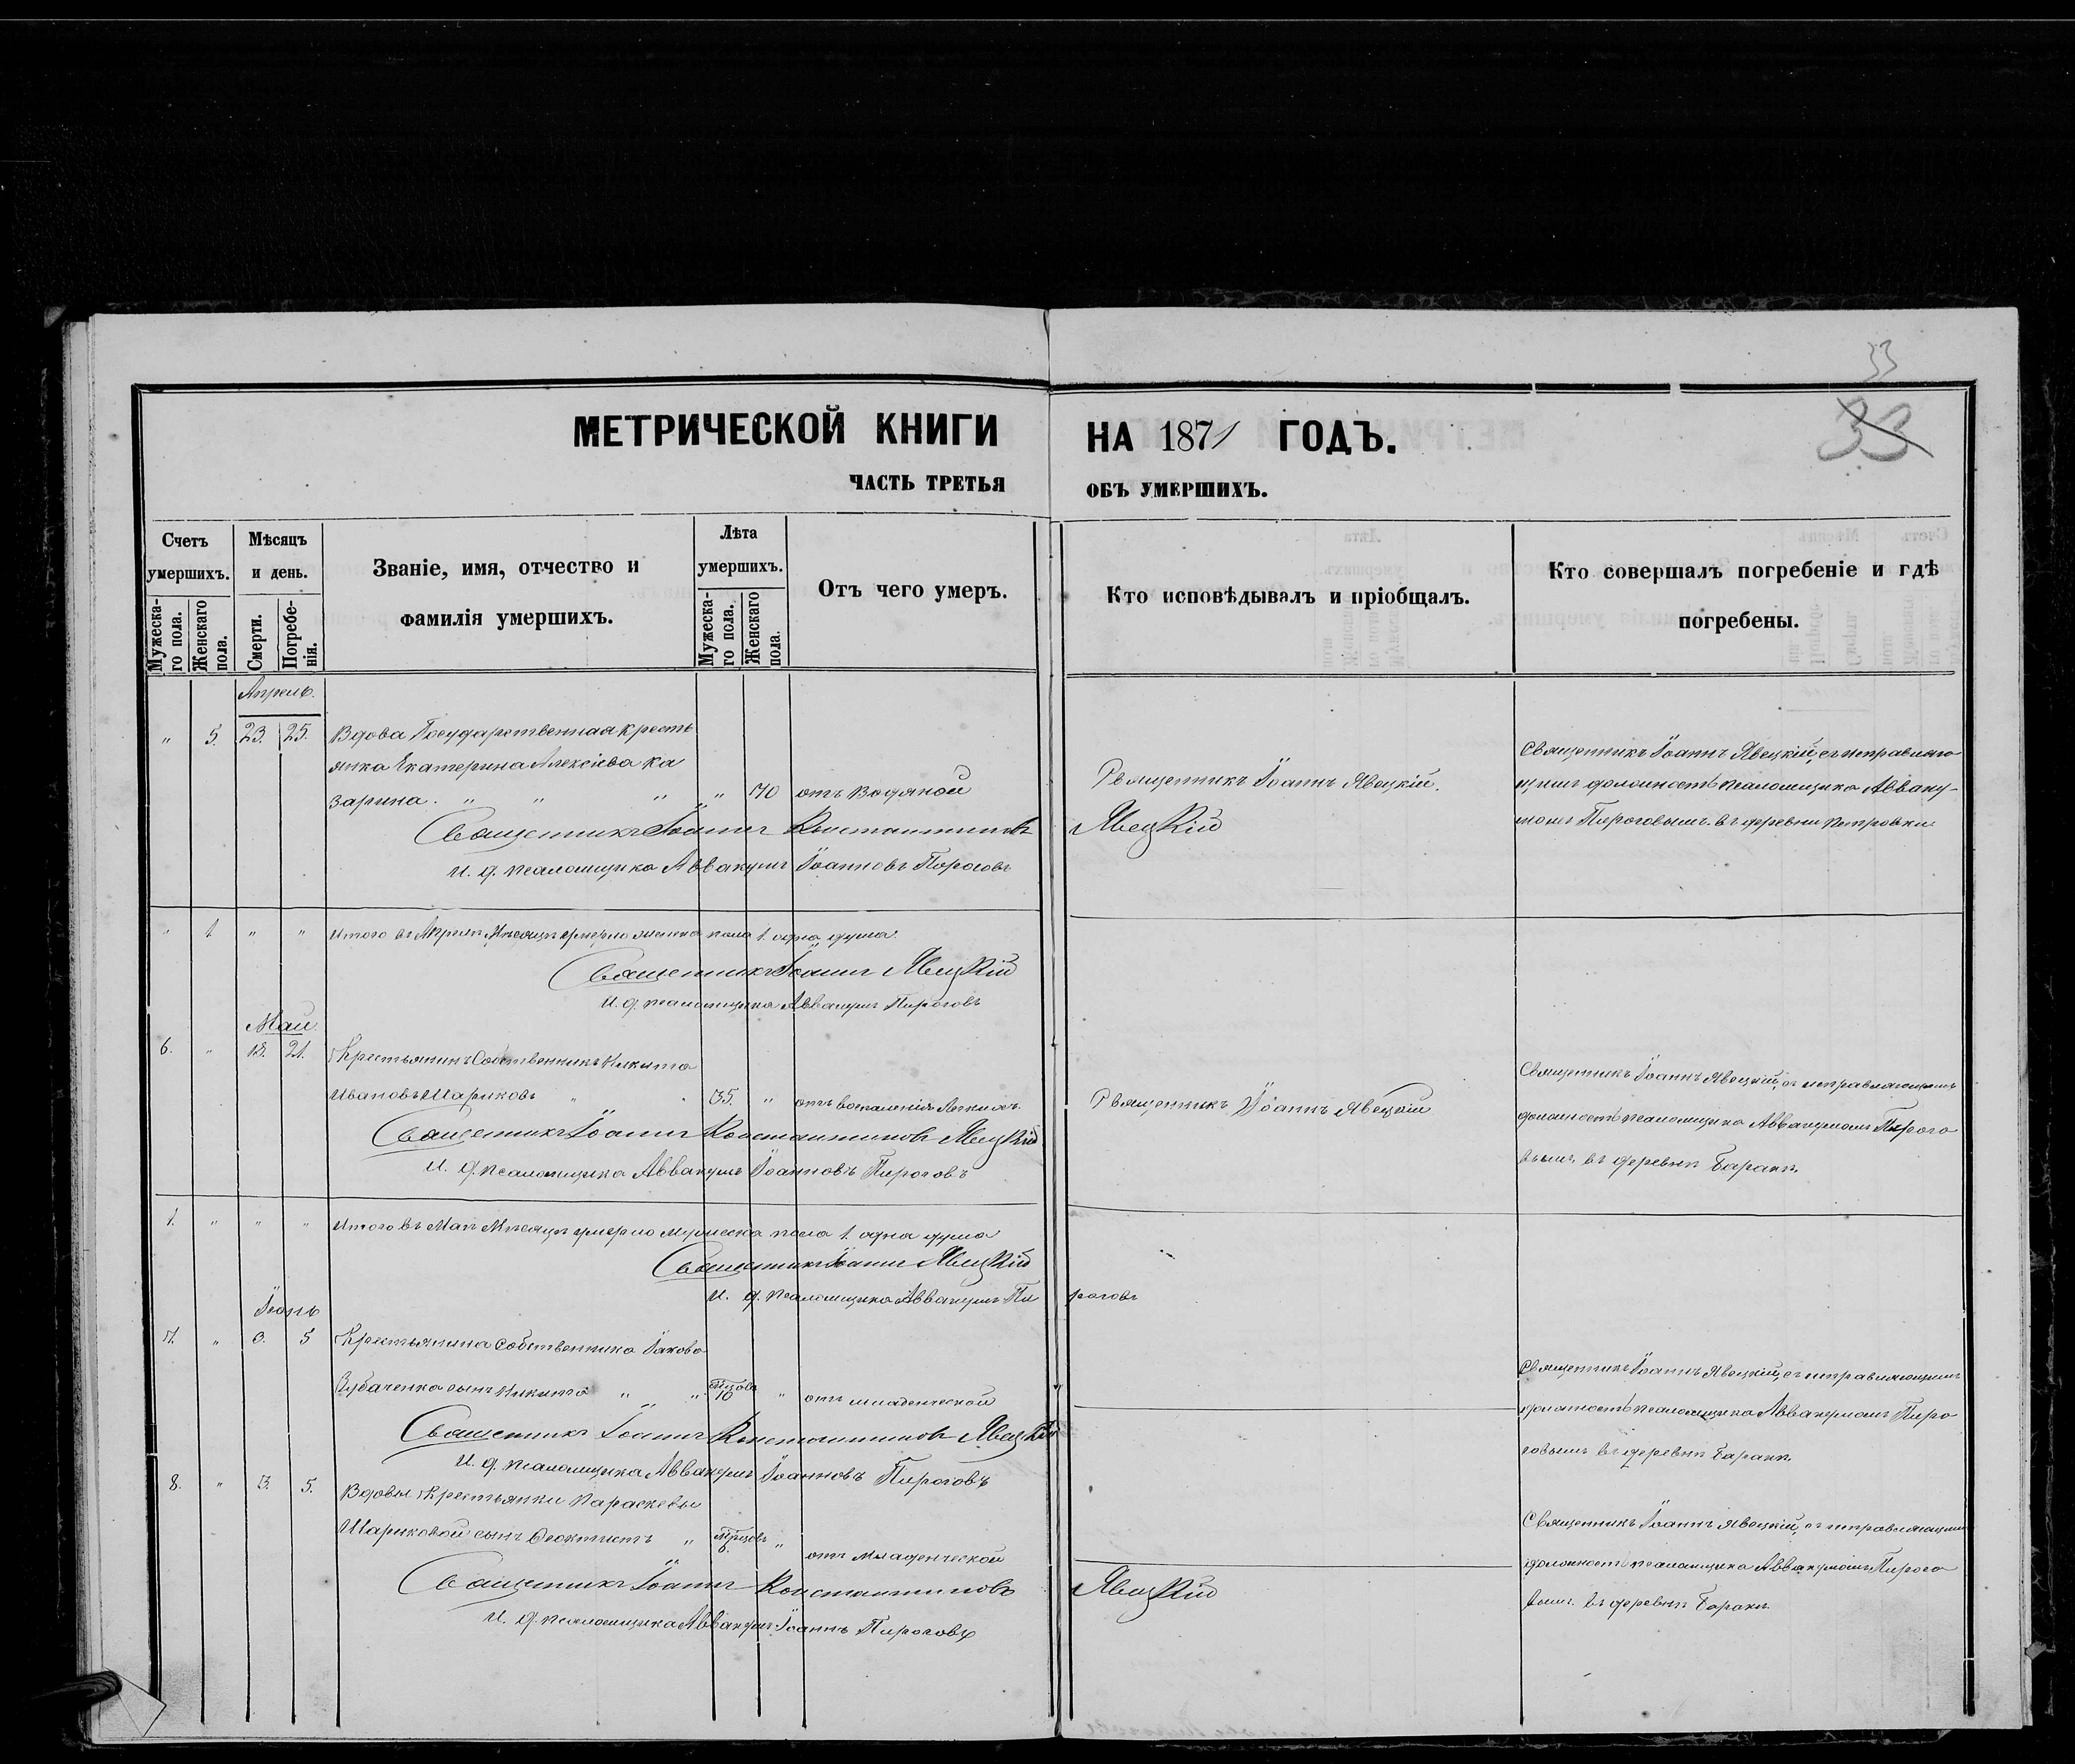 33
33
МЕТРИЧЕСКОЙ КНИГИ НА 1871 ГОДЪ.
ЧАСТЬ ТРЕТЬЯ ОБЪ УМЕРШИХЪ.
Счетъ умершихъ.
Мужескаго пола.
Женскаго пола.
Мѣсяцъ и день.
Смерти.
Погребенія.
Званіе, имя, отчество и фамилія умершихъ.
Лѣта умершихъ.
Мужескаго пола.
Женскаго пола.
Отъ чего умеръ.
Кто исповѣдывалъ и пріобщалъ.
Кто совершалъ погребеніе и гдѣ погребены.
Апрель.
" 5. 23. 25. Вдова Государственная кресть
янка Екатерина Алексіева Ка
зарина. " " " " 70 отъ водяной
Священникъ Іоаннъ Явецкій.
Священникъ Іоаннъ Явецкій, съ исправляю
щимъ должность псаломщика Авваку-
момъ Пироговымъ. въ деревни Петровки.
Священникъ Іоаннъ Константиновъ Явецкій
И. д. псаломщика Аввакумъ Іоанновъ Пироговъ
" 1. " " Итого въ Апрелѣ Мѣсяцѣ умерло женска пола 1. одна душа.
Священникъ Іоаннъ Явецкій
И. д. псаломщика Аввакумъ Пироговъ
Май.
6. " 18. 21. Крестьянинъ Собственникъ Никита
Ивановъ Шариковъ " " 35. " отъ воспаленія легкихъ.
Священникъ Іоаннъ Явецкій
Священникъ Іоаннъ Явецкій, съ исправляющимъ
должность псаломщика Аввакумомъ Пирого
вымъ, въ деревнѣ Баракѣ.
Священникъ Іоаннъ Константиновъ Явецкій
И. д. псаломщика Аввакумъ Іоанновъ Пироговъ
1. " " " Итого въ Маѣ Мѣсяцѣ умерло мужеска пола 1. одна душа
Священникъ Іоаннъ Явецкій
И. д. псаломщика Аввакумъ Пироговъ
Іюнь
7. " 3. 5 Крестьянина Собственника Іакова
сынъ Никита " " 10 " отъ младенческой
Священникъ Іоаннъ Явецкій, съ исправляющимъ
должность псаломщика Аввакумомъ Пиро
говымъ въ деревнѣ Баракѣ.
Священникъ Іоаннъ Константиновъ Явецкій
И. д. псаломщика Аввакумъ Іоанновъ Пироговъ
8. " 3. 5. Вдовы Крестьянки Параскевы
Шариковой сынъ Феоктистъ " " отъ младенческой
Священникъ Іоаннъ Явецкій, съ исправляющимъ
должность псаломщика Аввакумомъ Пирого
вымъ. въ деревнѣ Баракѣ
Священникъ Іоаннъ Константиновъ Явецкій
И. д. псаломщика Аввакумъ Іоаннъ Пироговъ